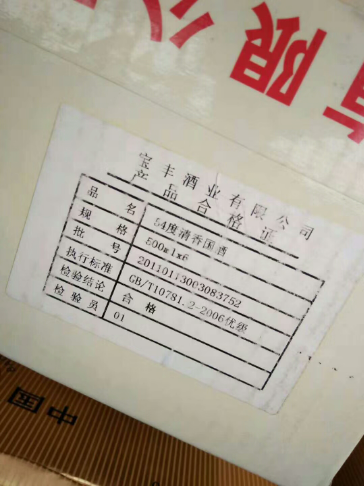 有限公
宝丰酒业有限公司
产品合格证
品名 54度清香国香
规格 500mlx6
批号 20110113003083752
执行标准 GB/T10781.2-2006优级
检验结论 合格
检验员 01
中国